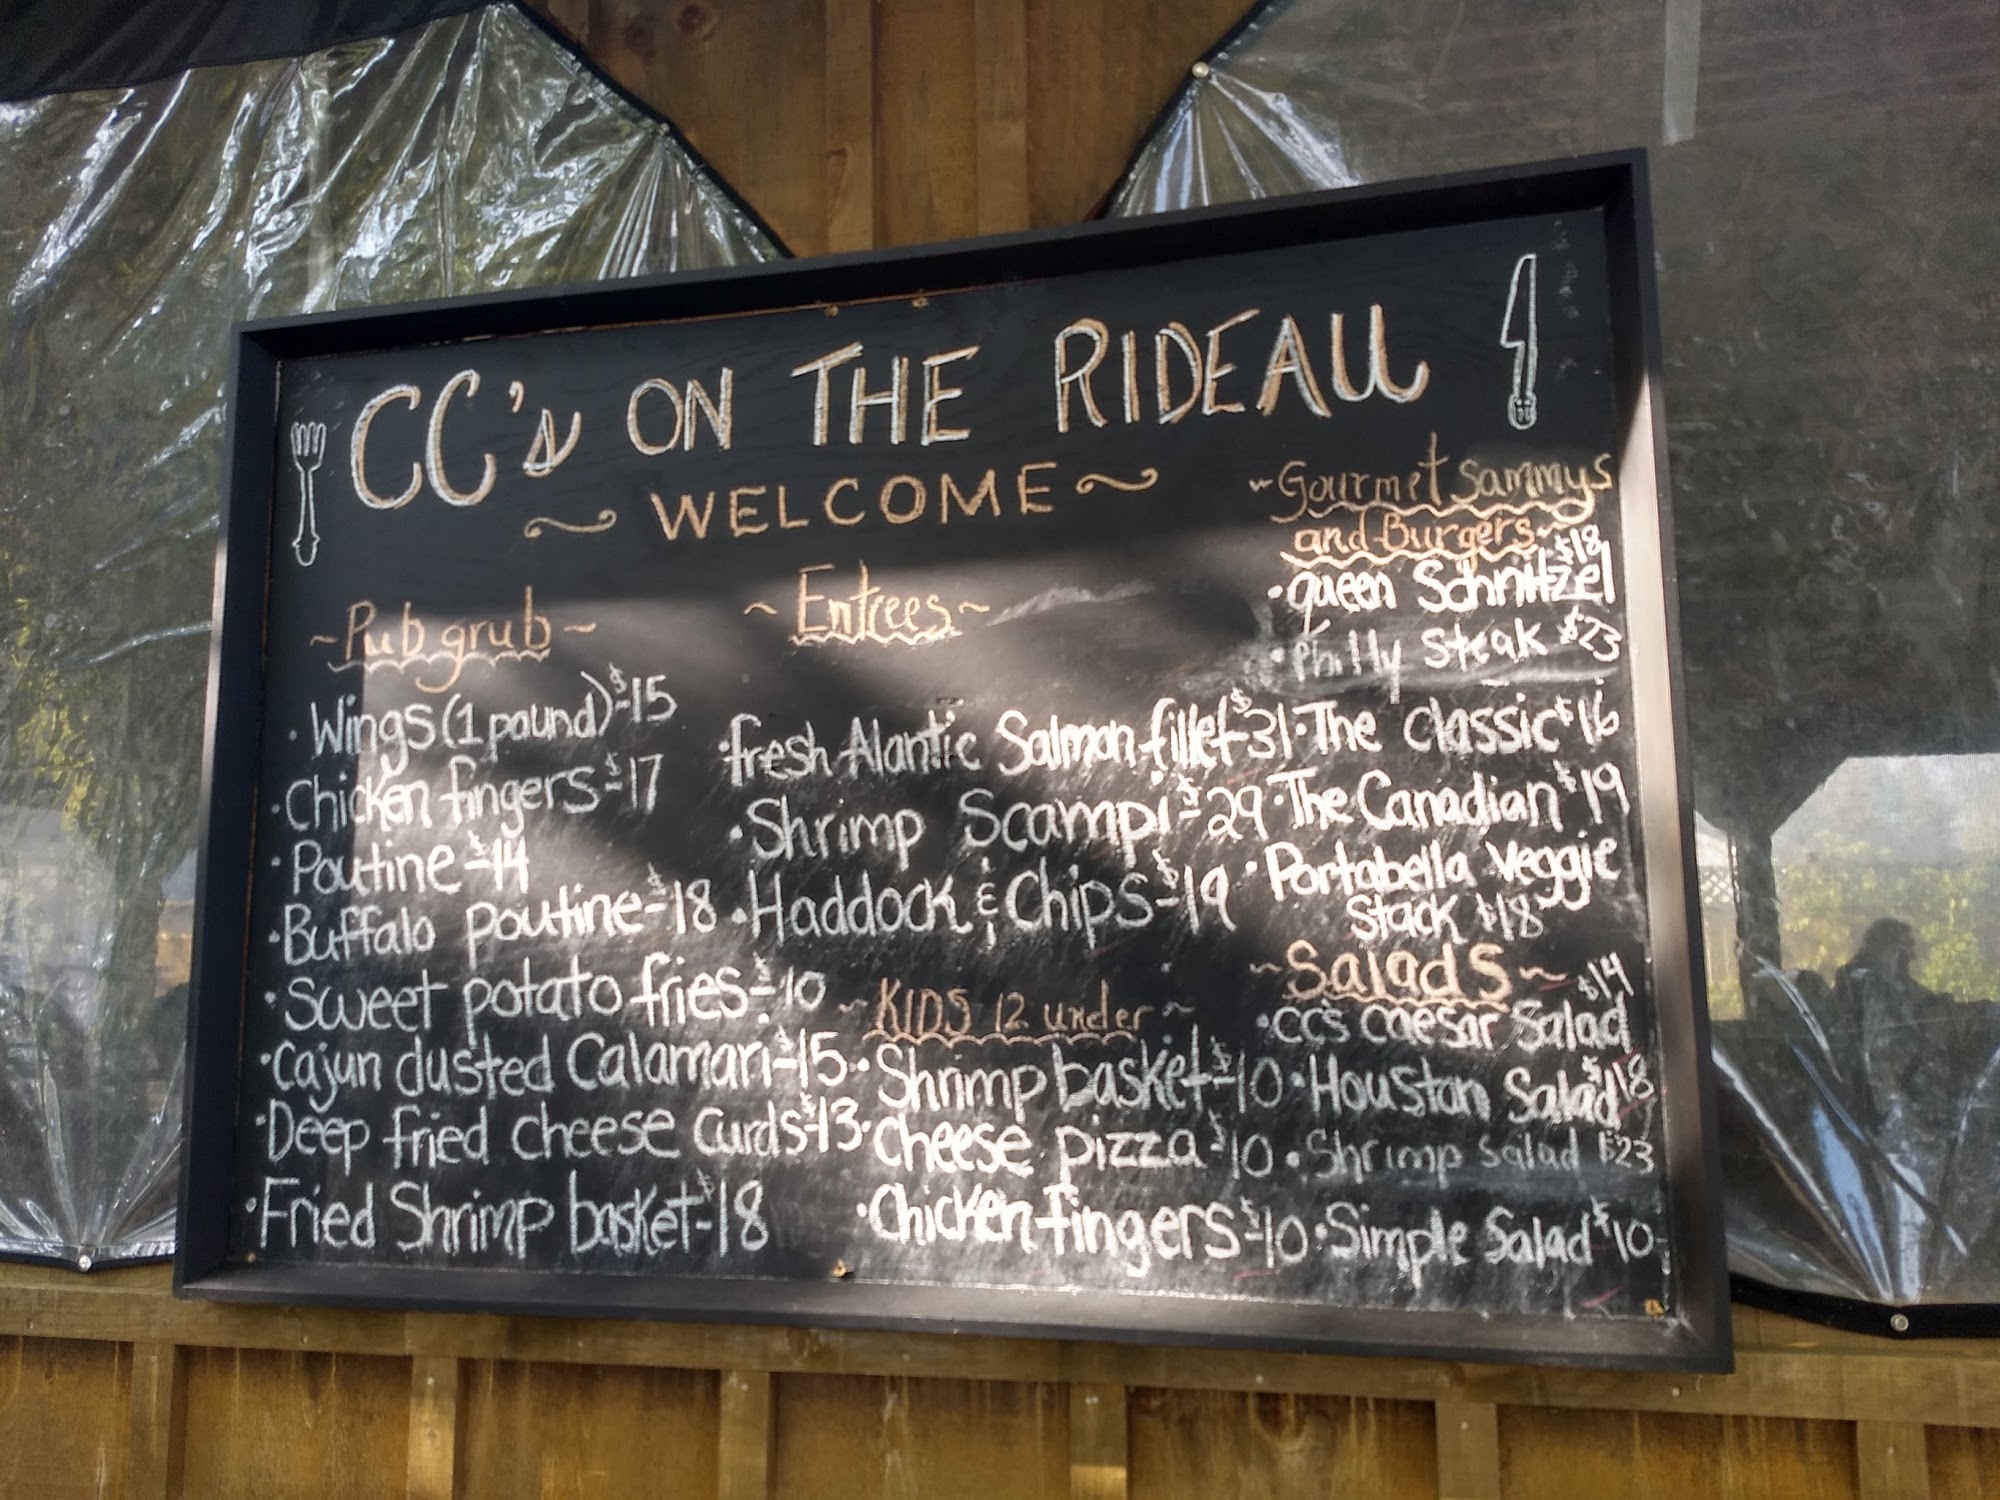 CC's ON THE RIDEAU
~ WELCOME ~
~ Pub grub ~
• Wings (1 pound) - $15
• Chicken fingers - $17
• Poutine - $14
• Buffalo poutine - $18
• Sweet potato fries - $10
• Cajun dusted Calamari - $15
• Deep fried cheese Curds - $13
• Fried Shrimp basket - $18
~ Entrees ~
• fresh Alantic Salmon fillet - $31
• Shrimp Scampi - $29
• Haddock & Chips - $19
~ KIDS 12 under ~
• Shrimp basket - $10
• Cheese pizza - $10
• Chicken fingers - $10
~ Gourmet Sammys
and Burgers ~
• queen Schnitzel $18
• Philly Steak $23
• The Classic $16
• The Canadian $19
• Portabella Veggie
Stack $18
~ Salads ~
• CC's Caesar Salad $14
• Houstan Salad $18
• Shrimp Salad $23
• Simple Salad $10